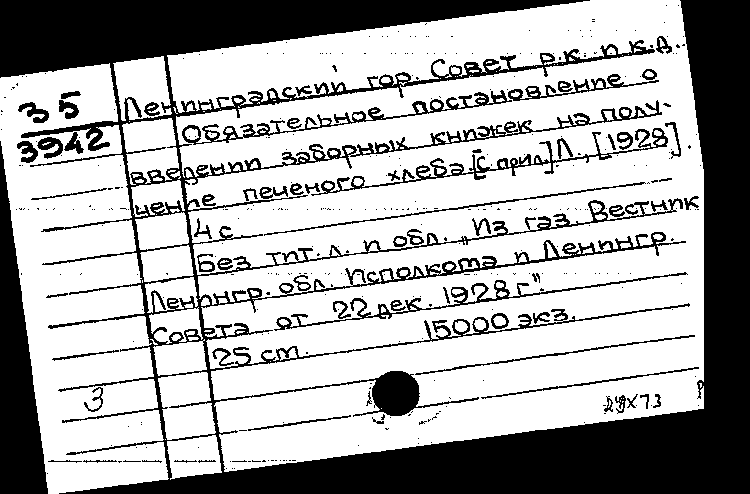 35
3942
Ленинградский гор. Совет р.к. п к.д.
Обязательное постановление о
введении заборных книжек на полу-
чение печеного хлеба. [С прил.] Л., [1928].
4 с.
Без тит. л. и обл. „Из газ. Вестник
Ленингр. обл. Исполкома и Ленингр.
Совета от 22 дек. 1928 г".
25 cm. 15000 экз.
3